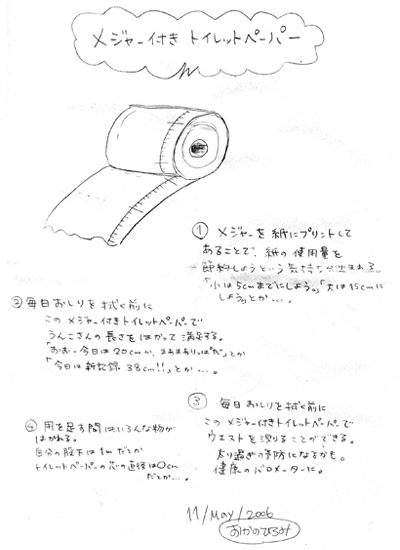 メジャー付きトイレットペーパー
① メジャーを紙にプリントして
あることで、紙の使用量を
節約しようという気持ちが生まれる。
「小は5cmまでにしよう。」「大は15cmに
しよう。」とか…。
② 毎日おしりを拭く前に
このメジャー付きトイレットペーパーで
うんこさんの長さをはかって満足する。
「おお…今日は20cmか、まあまありっぱだ」とか
「今日は新記録 38cm!!」とか…。
③ 毎日おしりを拭く前に
このメジャー付きトイレットペーパーで
ウエストを測ることができる。
太り過ぎの予防になるかも。
健康のバロメーターに。
④ 用を足す間はいろんな物が
はかれる。
自分の股下は1mだとか
トイレットペーパーの芯の直径は〇cm
だとか…。
11/May/2006
おかのひろみ